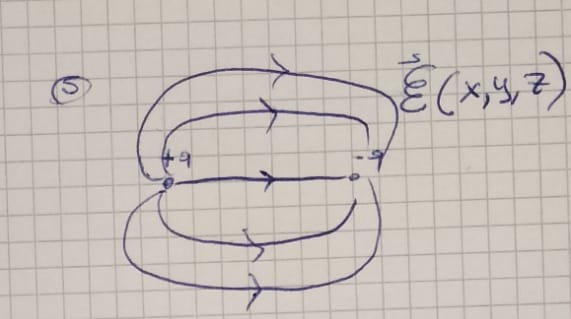 ⑤
\vec{E}(x,y,z)
+q -q